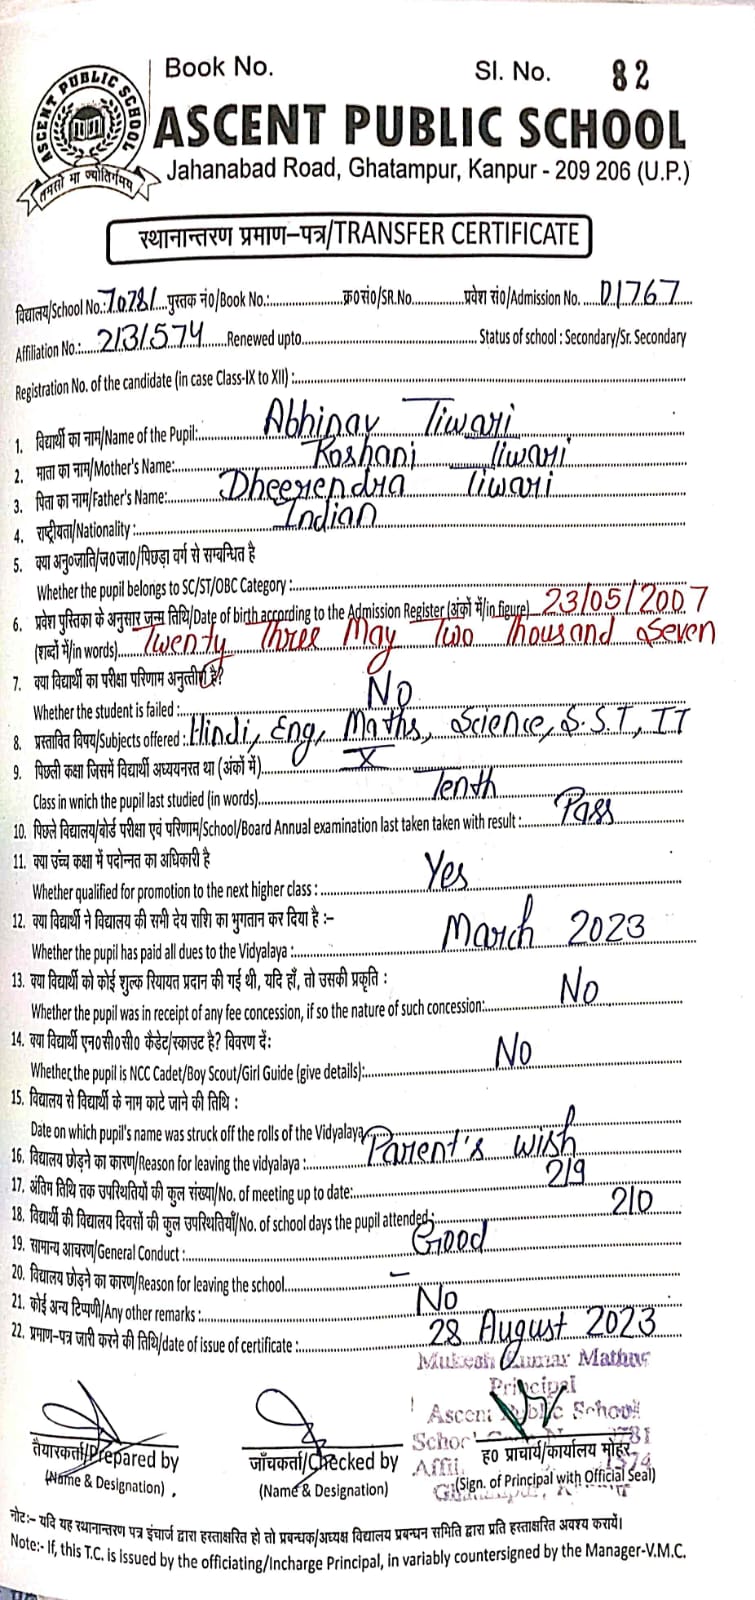 ASCENT PUBLIC SCHOOL
तमसो मा ज्योतिर्गमय
Book No. Sl. No. 82
ASCENT PUBLIC SCHOOL
Jahanabad Road, Ghatampur, Kanpur - 209 206 (U.P.)
स्थानान्तरण प्रमाण–पत्र/TRANSFER CERTIFICATE
विद्यालय/School No.: 70781 पुस्तक नं०/Book No.: क्र०सं०/SR.No. प्रवेश सं०/Admission No. D1767
Affiliation No.: 2131574 Renewed upto Status of school : Secondary/Sr. Secondary
Registration No. of the candidate (in case Class-IX to XII) :
1. विद्यार्थी का नाम/Name of the Pupil: Abhinav Tiwari
2. माता का नाम/Mother's Name: Roshani Tiwari
3. पिता का नाम/Father's Name: Dheerendra Tiwari
4. राष्ट्रीयता/Nationality : Indian
5. क्या अनु०जाति/ज०जा०/पिछड़ा वर्ग से सम्बन्धित है
Whether the pupil belongs to SC/ST/OBC Category :
6. प्रवेश पुस्तिका के अनुसार जन्म तिथि/Date of birth according to the Admission Register (अंकों में/in figure) 23/05/2007
(शब्दों में/in words) Twenty Three May Two Thousand Seven
7. क्या विद्यार्थी का परीक्षा परिणाम अनुत्तीर्ण है?
Whether the student is failed : No
8. प्रस्तावित विषय/Subjects offered : Hindi, Eng, Maths, Science, S.S.T, IT
9. पिछली कक्षा जिसमें विद्यार्थी अध्ययनरत था (अंकों में) X
Class in wnich the pupil last studied (in words) Tenth
10. पिछले विद्यालय/बोर्ड परीक्षा एवं परिणाम/School/Board Annual examination last taken taken with result : Pass
11. क्या उच्च कक्षा में पदोन्नत का अधिकारी है
Whether qualified for promotion to the next higher class : Yes
12. क्या विद्यार्थी ने विद्यालय की सभी देय राशि का भुगतान कर दिया है :–
Whether the pupil has paid all dues to the Vidyalaya : March 2023
13. क्या विद्यार्थी को कोई शुल्क रियायत प्रदान की गई थी, यदि हाँ, तो उसकी प्रकृति :
Whether the pupil was in receipt of any fee concession, if so the nature of such concession: No
14. क्या विद्यार्थी एन०सी०सी० कैडेट/स्काउट है? विवरण दें:
Whether, the pupil is NCC Cadet/Boy Scout/Girl Guide (give details): No
15. विद्यालय से विद्यार्थी के नाम काटे जाने की तिथि :
Date on which pupil's name was struck off the rolls of the Vidyalaya
16. विद्यालय छोड़ने का कारण/Reason for leaving the vidyalaya : Parent's wish
17. अंतिम तिथि तक उपस्थितियों की कुल संख्या/No. of meeting up to date: 219
18. विद्यार्थी की विद्यालय दिवसों की कुल उपस्थितियाँ/No. of school days the pupil attended: 210
19. सामान्य आचरण/General Conduct : Good
20. विद्यालय छोड़ने का कारण/Reason for leaving the school –
21. कोई अन्य टिप्पणी/Any other remarks : No
22. प्रमाण-पत्र जारी करने की तिथि/date of issue of certificate : 28 August 2023
Mukesh Kumar Mathur
Principal
Ascent Public School
तैयारकर्ता/Prepared by जाँचकर्ता/Checked by ह० प्राचार्य/कार्यालय मोहर
(Name & Designation) (Name & Designation) (Sign. of Principal with Official Seal)
नोट:– यदि यह स्थानान्तरण पत्र इंचार्ज द्वारा हस्ताक्षरित हो तो प्रबन्धक/अध्यक्ष विद्यालय प्रबन्धन समिति द्वारा प्रति हस्ताक्षरित अवश्य करायें।
Note:- If, this T.C. is issued by the officiating/Incharge Principal, in variably countersigned by the Manager-V.M.C.